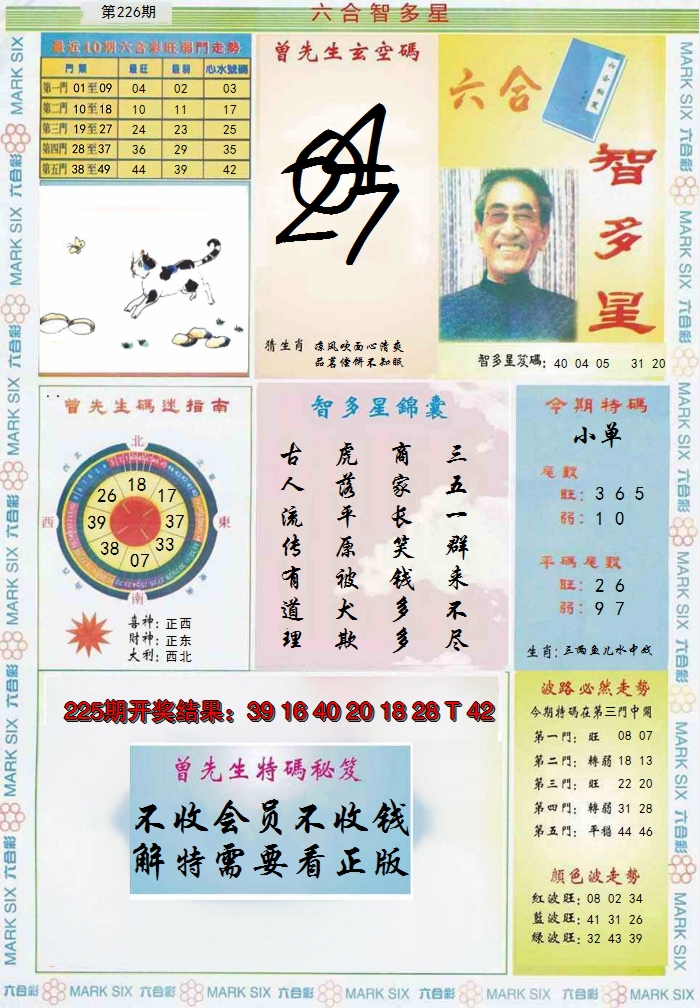 第226期
六合智多星
最近10期六合彩旺弱門走勢
門類 最旺 最弱 心水號碼
第一門 01至09 04 02 03
第二門 10至18 10 11 17
第三門 19至27 24 23 25
第四門 28至37 36 29 35
第五門 38至49 44 39 42
曾先生玄空碼
猜生肖 凉风吹面心清爽
品茗傺饼不知眠
六合
六合秘笈
智多星
智多星笈碼：40 04 05 31 20
曾先生碼迷指南
北
西北
東北
西
東
南
18
17
37
33
07
38
39
26
喜神：正西
財神：正东
大利：西北
智多星錦囊
三五一群来不尽
商家长笑钱多多
虎落平原被犬欺
古人流传有道理
今期特碼
小单
尾数
旺：3 6 5
弱：1 0
平碼尾数
旺：2 6
弱：9 7
生肖：三两鱼儿水中戏
225期开奖结果：39 16 40 20 18 28 T 42
曾先生特碼秘笈
不收会员不收钱
解特需要看正版
波路必然走勢
今期特碼在第三門中開
第一門：旺 08 07
第二門：轉弱 18 13
第三門：旺 22 20
第四門：轉弱 31 28
第五門：平穩 44 46
顏色波走勢
紅波旺：08 02 34
藍波旺：41 31 26
綠波旺：32 43 39
六合彩 MARK SIX 六合彩 MARK SIX 六合彩 MARK SIX 六合彩 MARK SIX 六合彩 MARK SIX